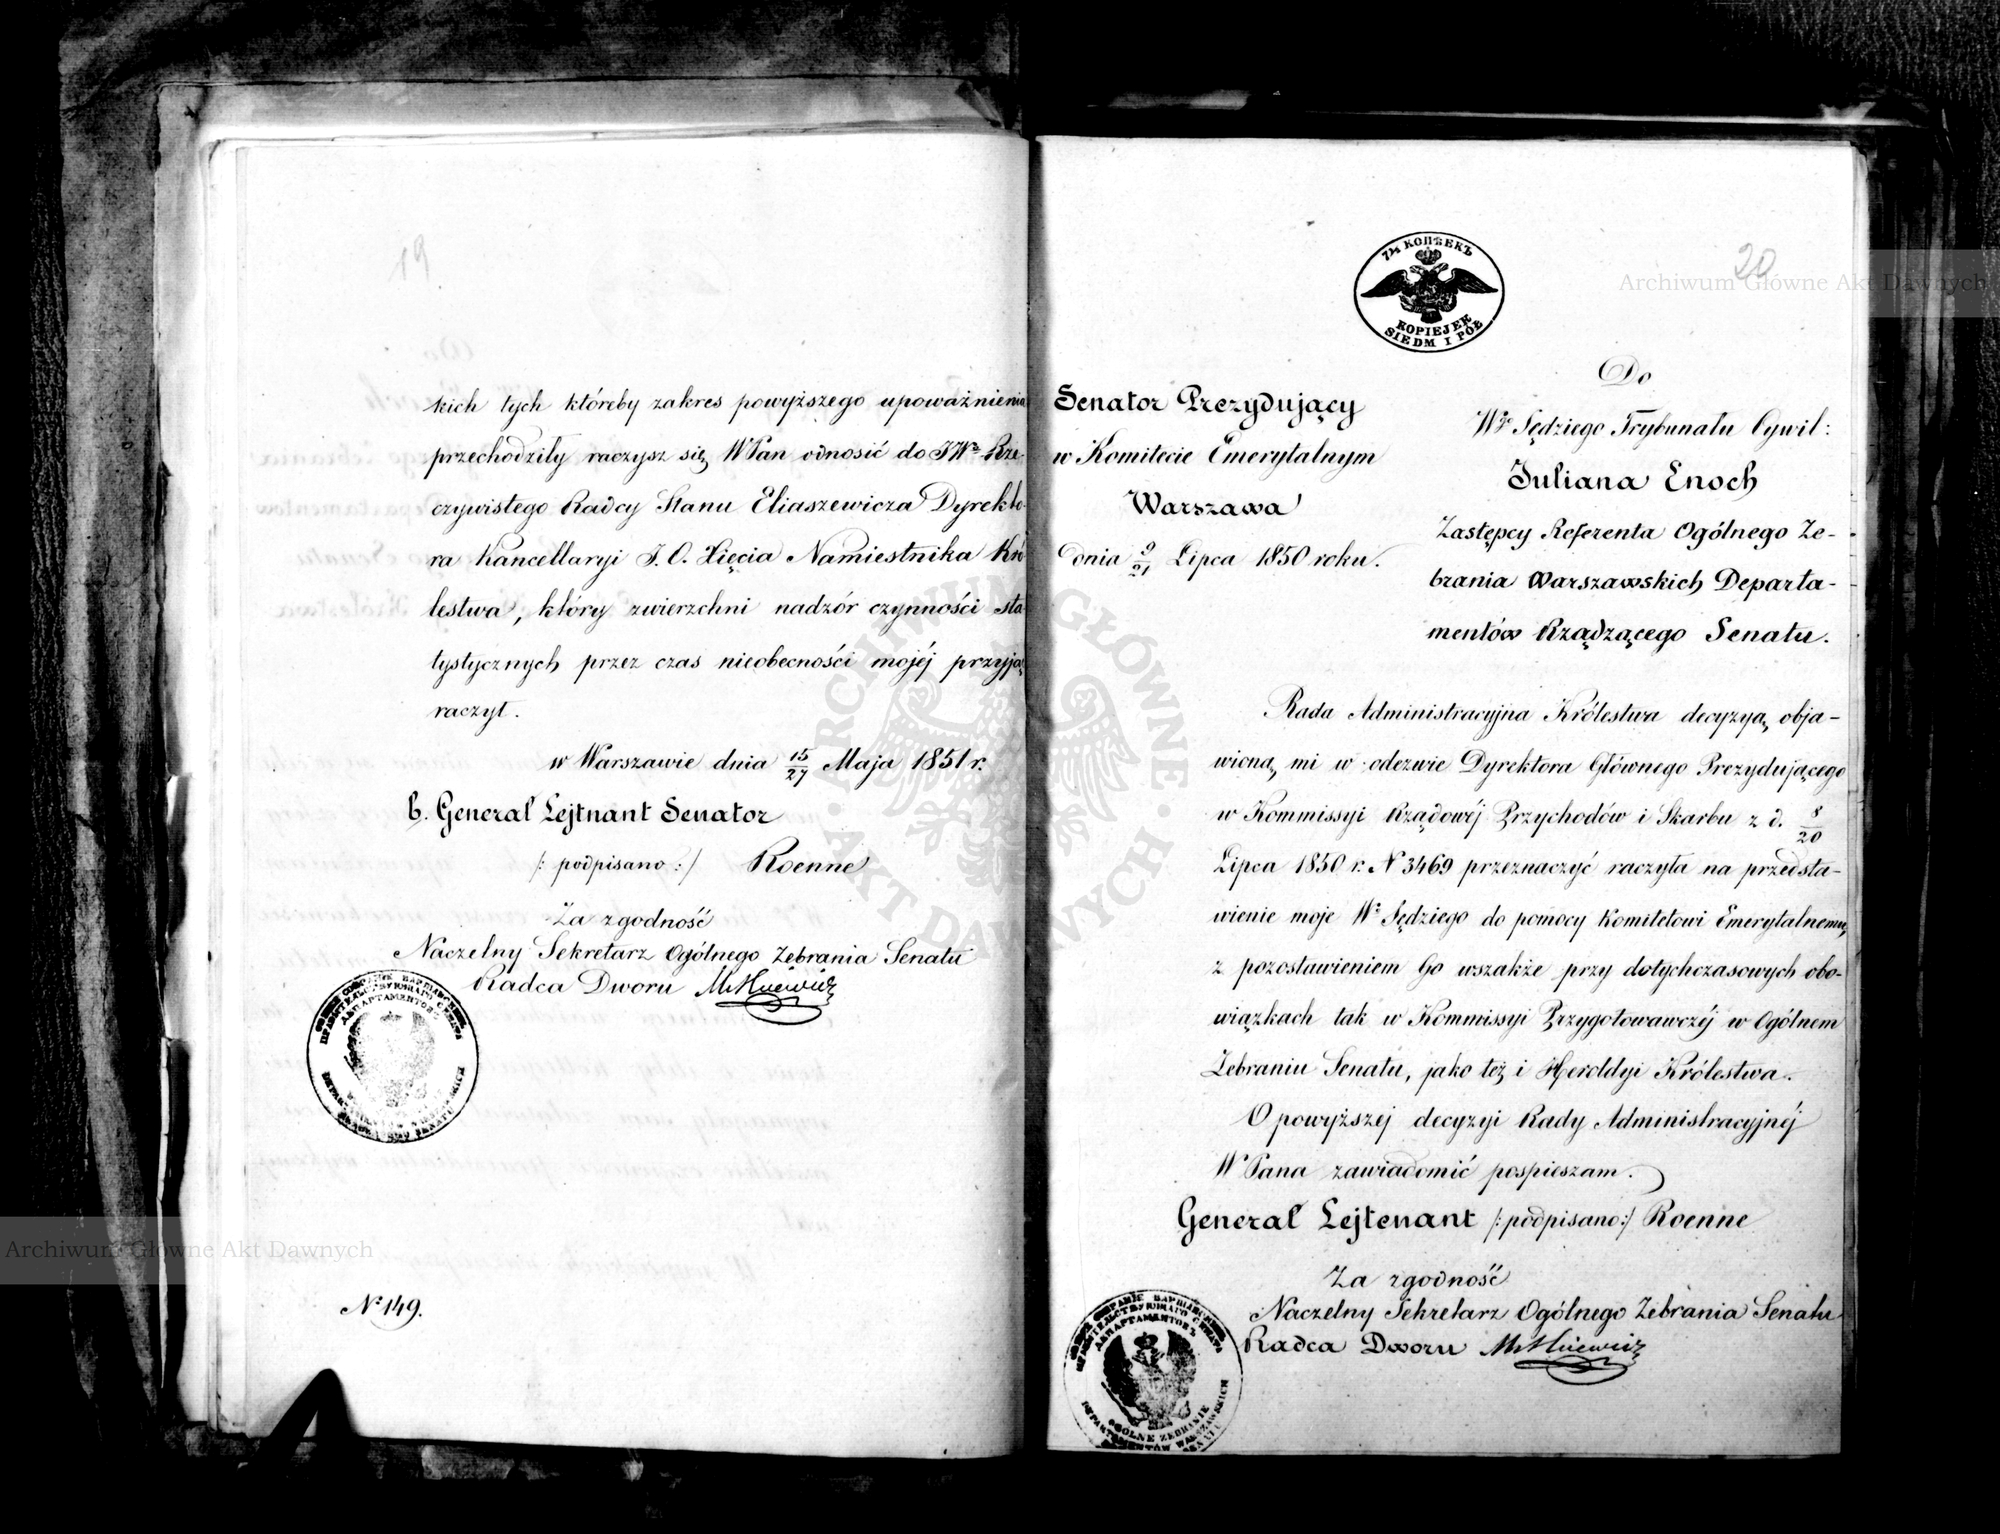 19
kich tych któreby zakres powyższego upoważnienia
przechodziły raczysz się WPan odnosić do JWº Rze-
czywistego Radcy Stanu Eliaszewicza Dyrekto-
ra Kancellaryi J. O. Xięcia Namiestnika Kró
lestwa, który zwierzchni nadzór czynności sta
tystycznych przez czas nieobecności mojéj przyjąć
raczył.
w Warszawie dnia 15/27 Maja 1851 r.
b. Generał Lejtnant Senator
/: podpisano :/ Roenne
Za zgodność
Naczelny Sekretarz Ogólnego Zebrania Senatu
Radca Dworu
Nº 149.
7½ КОПѢЕКЪ
KOPIEJEK
SIEDM I PÓŁ
20
Senator Prezydujący
w Komitecie Emerytalnym
Warszawa
dnia 9/21 Lipca 1850 roku.
Do
Wgo Sędziego Trybunału Cywil:
Juliana Enoch
Zastępcy Referenta Ogólnego Ze-
brania Warszawskich Departa-
mentów Rządzącego Senatu.
Rada Administracyjna Królestwa decyzyą obja-
wioną mi w odezwie Dyrektora Głównego Prezydującego
w Kommissyi Rządowéj Przychodów i Skarbu z d. 8/20
Lipca 1850 r. N 3469 przeznaczyć raczyła na przedsta-
wienie moje Wº Sędziego do pomocy Komitetowi Emerytalnemu,
z pozostawieniem Go wszakże przy dotychczasowych obo-
wiązkach tak w Kommissyi Przygotowawczéj w Ogólnem
Zebraniu Senatu, jako też i Heroldyi Królestwa.
O powyższej decyzyi Rady Administracyjnéj
WPana zawiadomić pospieszam.
Generał Lejtenant /: podpisano :/ Roenne
Za zgodność
Naczelny Sekretarz Ogólnego Zebrania Senatu
Radca Dworu
OGÓLNE ZEBRANIE
DEPARTAMENTÓW WARSZAWSKICH
Archiwum Główne Akt Dawnych
Archiwum Główne Akt Dawnych
ARCHIWUM GŁÓWNE
AKT DAWNYCH